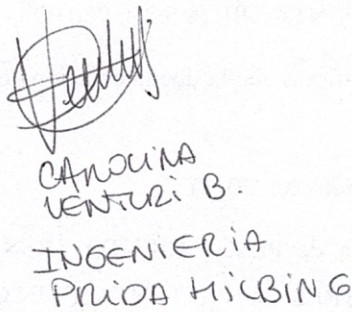 CAROLINA
VENTURI B.
INGENIERIA
PRIDA HILBING